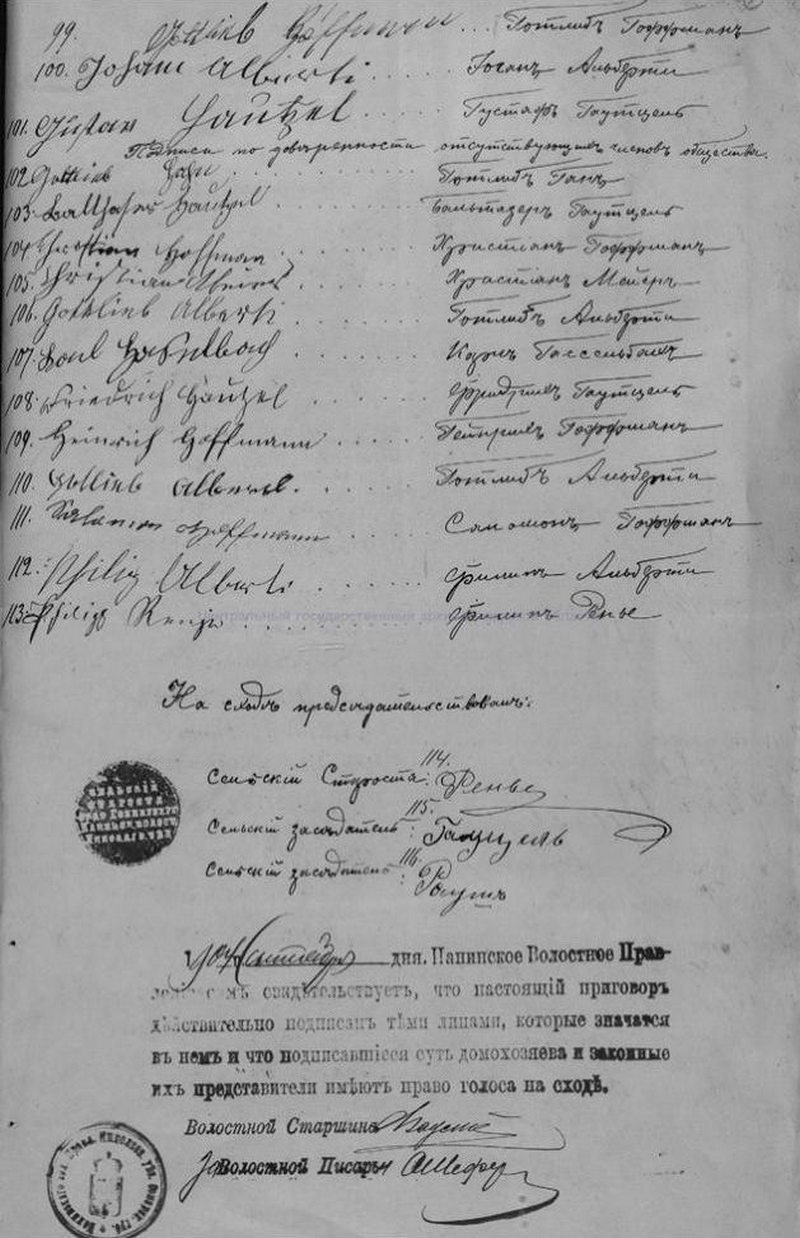 99. Gottlieb Hoffmann ... Готлибъ Гоффманъ
100. Johann Alberti ..... Іоганъ Альберти
101. Gustav Hautzel ..... Густафъ Гаутцель
Подписи по довѣренности отсутствующихъ членовъ общества.
102 Gottlieb Hahn ......... Готлибъ Ганъ
103. Balthaser Hautzel ........ Бальтазеръ Гаутцель
104 Christian Hoffmann ...... Христианъ Гоффманъ
105. Christian ...... Христіанъ Мейеръ
106. Gottlieb Alberti ...... Готлибъ Альберти
107. Karl Hasselbach ...... Карлъ Гассельбахъ
108. Friedrich Hautzel ..... Фридрихъ Гаутцель
109. Heinrich Hoffmann ..... Гейнрихъ Гоффманъ
110. Gottlieb Alberti. ..... Готлибъ Альберти
111. Salamon Hoffmann ..... Саломонъ Гоффманъ
112. Philip Alberti ..... Филипъ Альберти
113. Philipp Renje ......... Филипъ Ренье
Центральный государственный
На сходѣ предсѣдательствовали:
114.
Сельскій Староста: Ренье
115.
Сельскій засѣдатель: Гаутцель
116.
Сельскій засѣдатель: Раушъ
1904 Сентября 3 дня. Папинское Волостное Прав-
свидѣтельствуетъ, что настоящій приговоръ
дѣйствительно подписанъ тѣми лицами, которые значатся
въ немъ и что подписавшіеся суть домохозяева и законные
ихъ представители имѣютъ право голоса на сходѣ.
Волостной Старшина
За Волостной Писарь АШефер